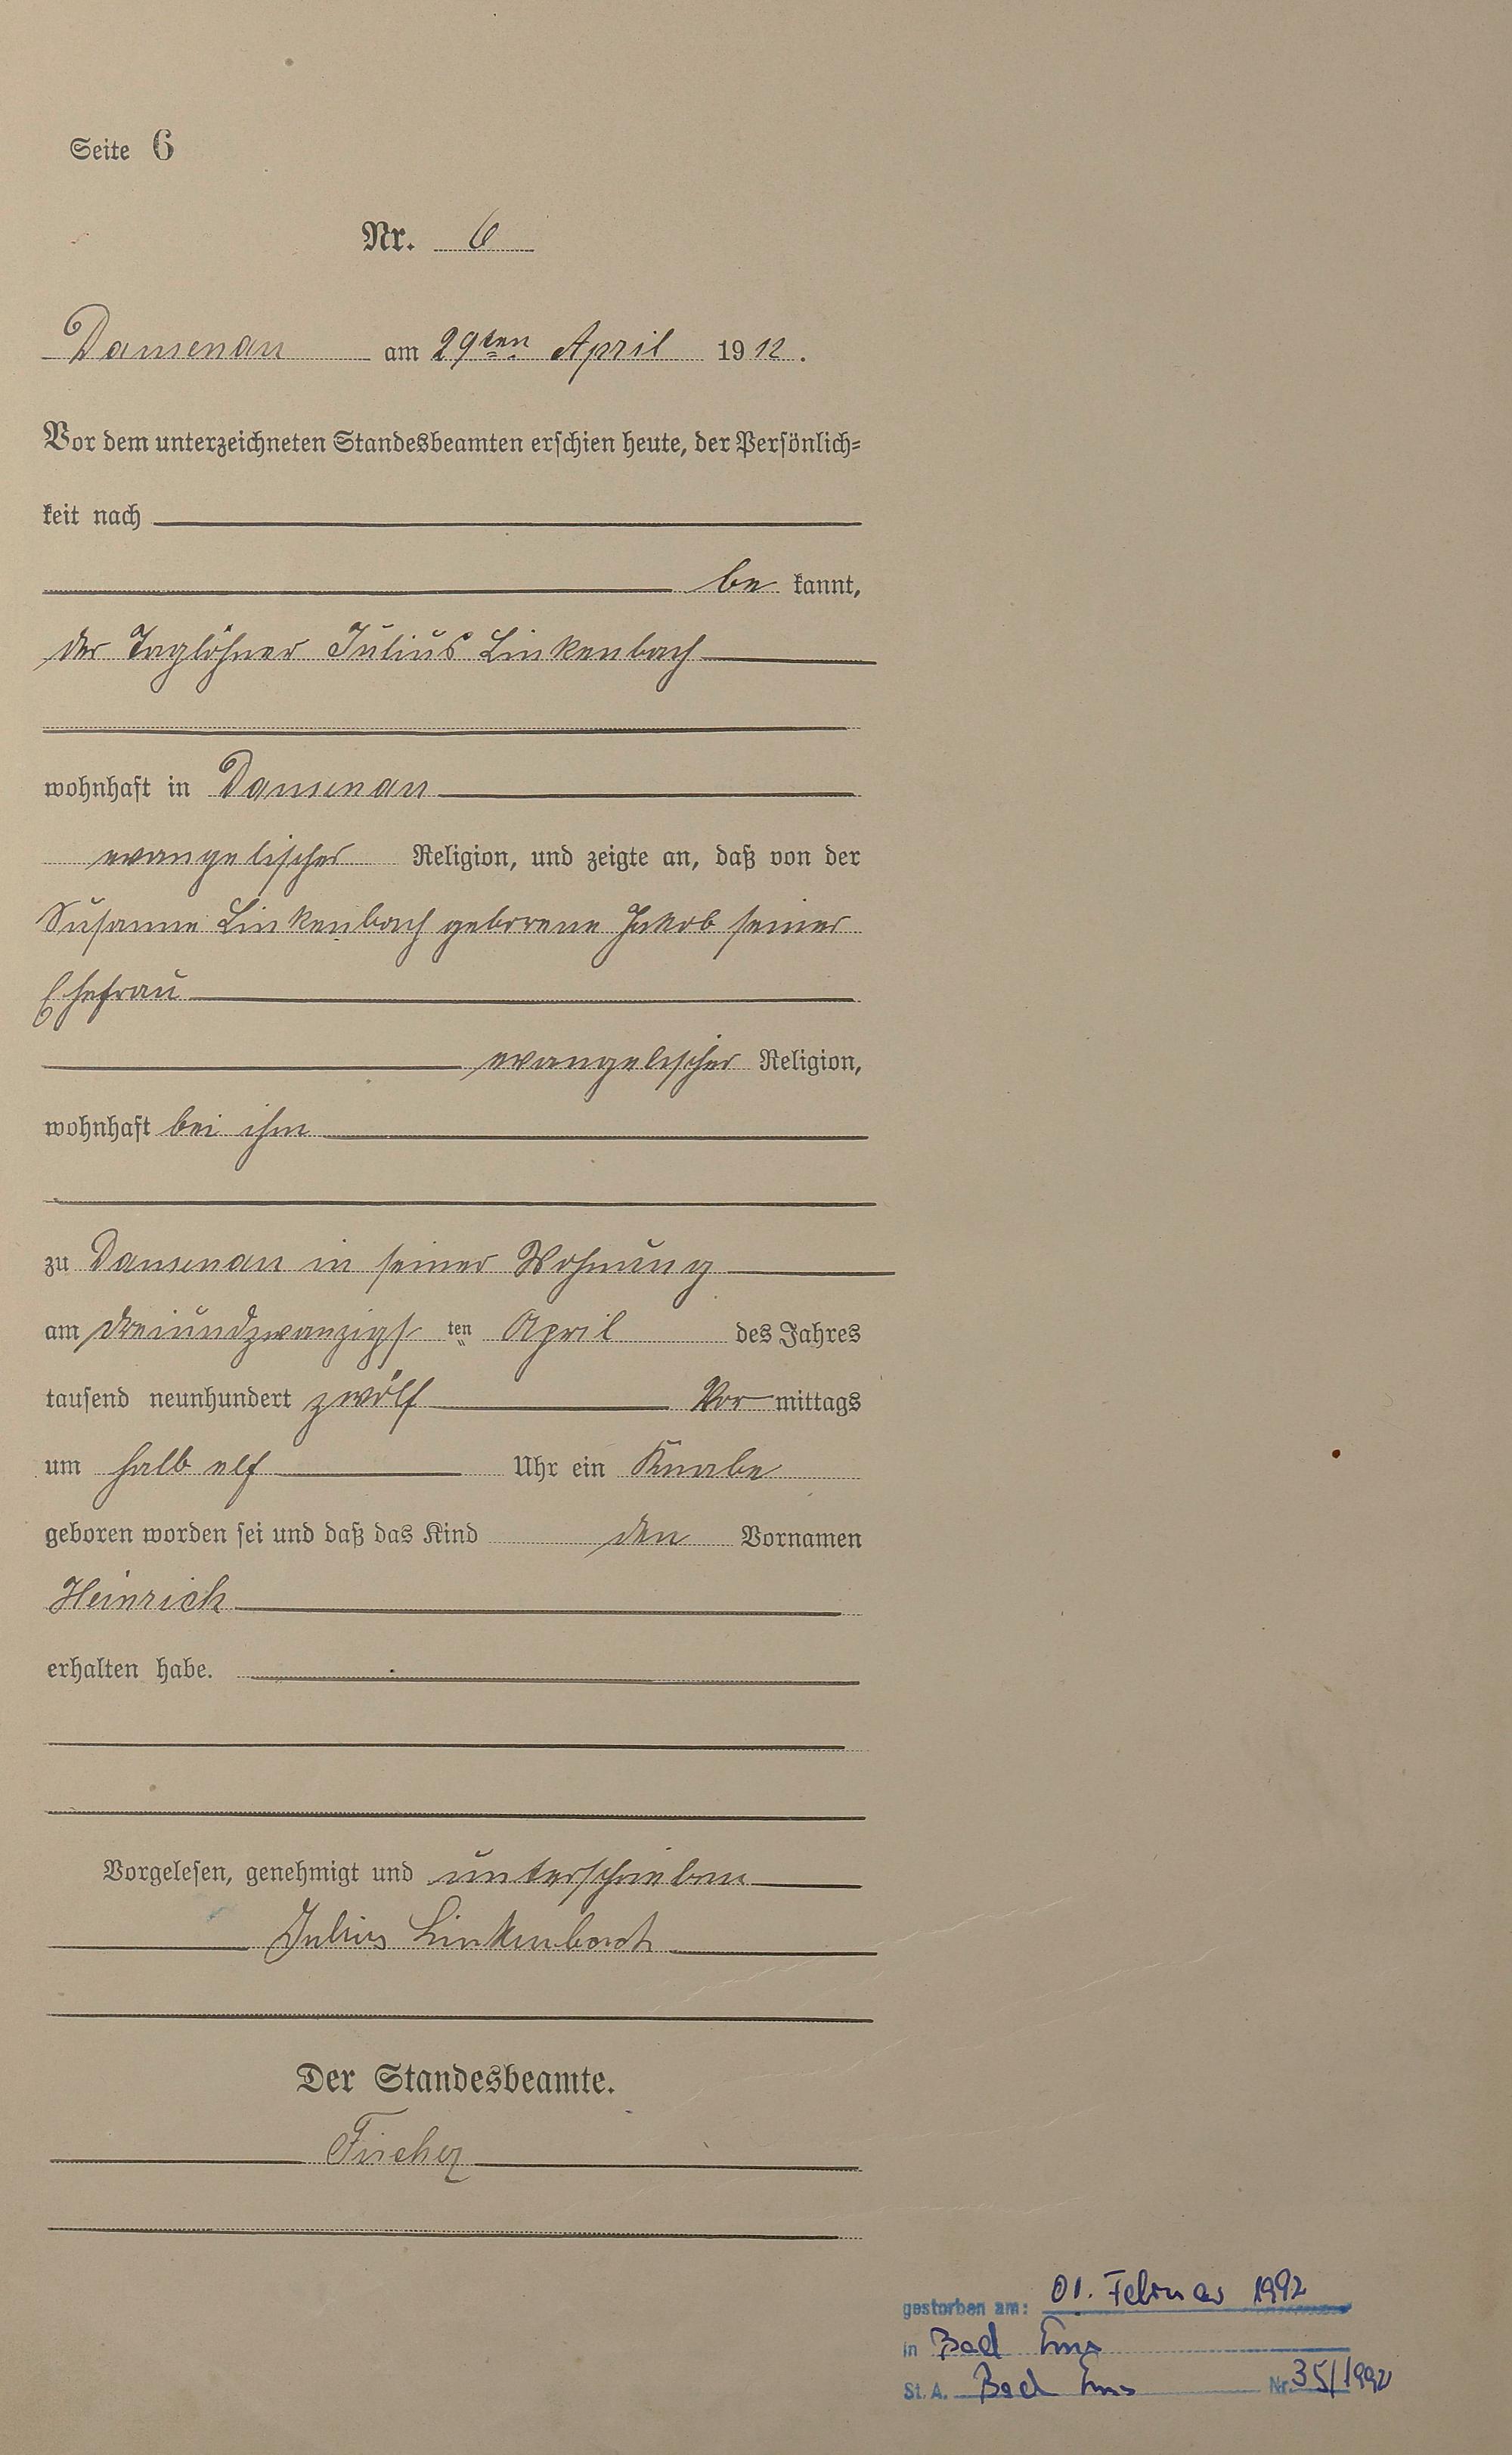 Seite 6
Nr. 6
Dausenau am 29ten April 1912.
Vor dem unterzeichneten Standesbeamten erschien heute, der Persönlich-
keit nach
be kannt,
der Taglöhner Julius Linkenbach
wohnhaft in Dausenau
evangelischer Religion, und zeigte an, daß von der
Susanne Linkenbach geborene Jakob seiner
Ehefrau
evangelischer Religion,
wohnhaft bei ihm
zu Dausenau in seiner Wohnung
am dreiundzwanzigs ten April des Jahres
tausend neunhundert zwölf Vor mittags
um halb elf Uhr ein Knabe
geboren worden sei und daß das Kind den Vornamen
Heinrich
erhalten habe.
Vorgelesen, genehmigt und unterschrieben
Julius Linkenbach
Der Standesbeamte.
Fischer
gestorben am: 01. Februar 1992
in Bad Ems
St. A. Bad Ems Nr. 35/1992